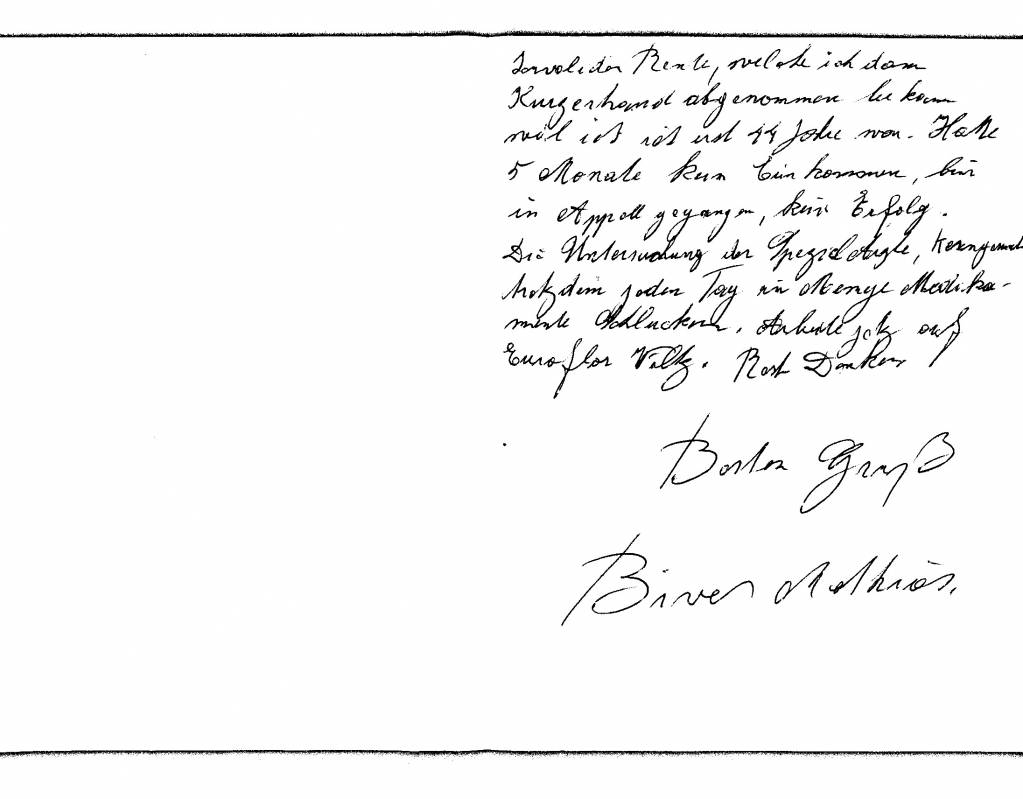 Invaliden Rente, welche ich dann
Kurzerhand abgenommen bekam
weil ich ich erst 44 Jahre war. Hatte
5 Monate kein Einkommen, bin
in Appell gegangen, kein Erfolg.
Die Untersuchung der Spezialärzte, kerngesund
trotzdem jeden Tag in Menge Medika-
mente Schlucken. Arbeite jetz auf
Euroflor Wiltz. Best Danken
Besten Gruß
Biver Mathias.